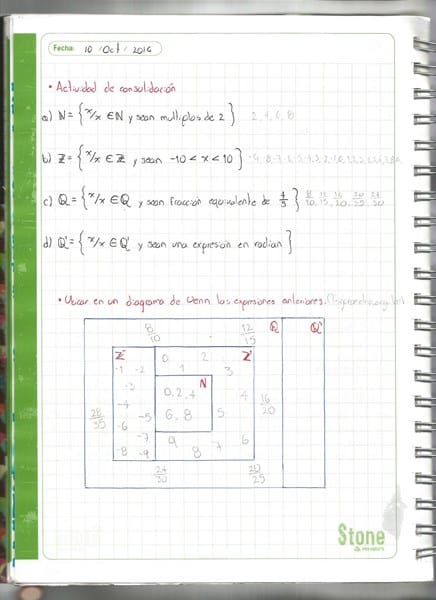 Fecha: 10 / Oct / 2016
• Actividad de consolidación
a) N = { x/x ∈ N y sean multiplos de 2 } 2, 4, 6, 8
b) Z = { x/x ∈ Z y sean -10 < x < 10 }
c) Q = { x/x ∈ Q y sean fracción equivalente de 4/5 } 8/10, 12/15, 16/20, 20/25, 24/30
d) Q' = { x/x ∈ Q' y sean una expresión en radian }
• Ubicar en un diagrama de Venn las expresiones anteriores.
8/10 12/15 Q Q'
Z⁻ 0 2 Z⁺
-1 -2 1 3
-3 N
-4 0, 2, 4 4 16/20
28/35 -5 6, 8 5
-6
-7 9 7 6
-8 -9 8
24/30 20/25
Stone